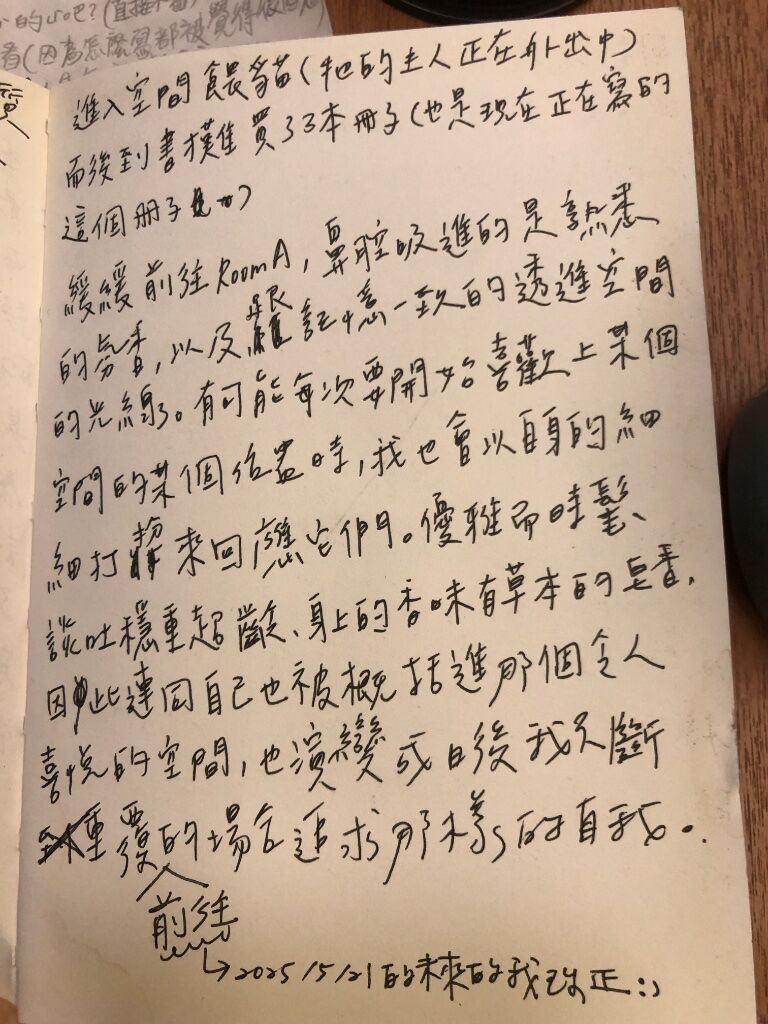 的心吧?(直接
者(因為怎麼忽都被覺得很
進入空間餵貓(牠的主人正在外出中)
而後到書攤隻買了3本冊子(也是現在正在寫的
這個冊子)
緩緩前往RoomA,鼻腔吸進的是熟悉
的芬香,以及跟記憶一致的透進空間
的光線。有可能每次要開始喜歡上某個
空間的某個位置時,我也會以自身的細
細打扮來回應它們。優雅而時髦、
談吐穩重超齡、身上的香味有草本的皂香,
因此連同自己也被概括進那個令人
喜悅的空間,也演變成日後我不斷
重覆的場合追求那樣的自我。
前往
↳2025/5/21的未來的我改正:)